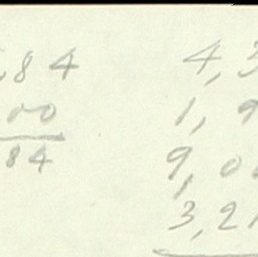 ,84
00
84
4,3
1,9
9,0
3,2